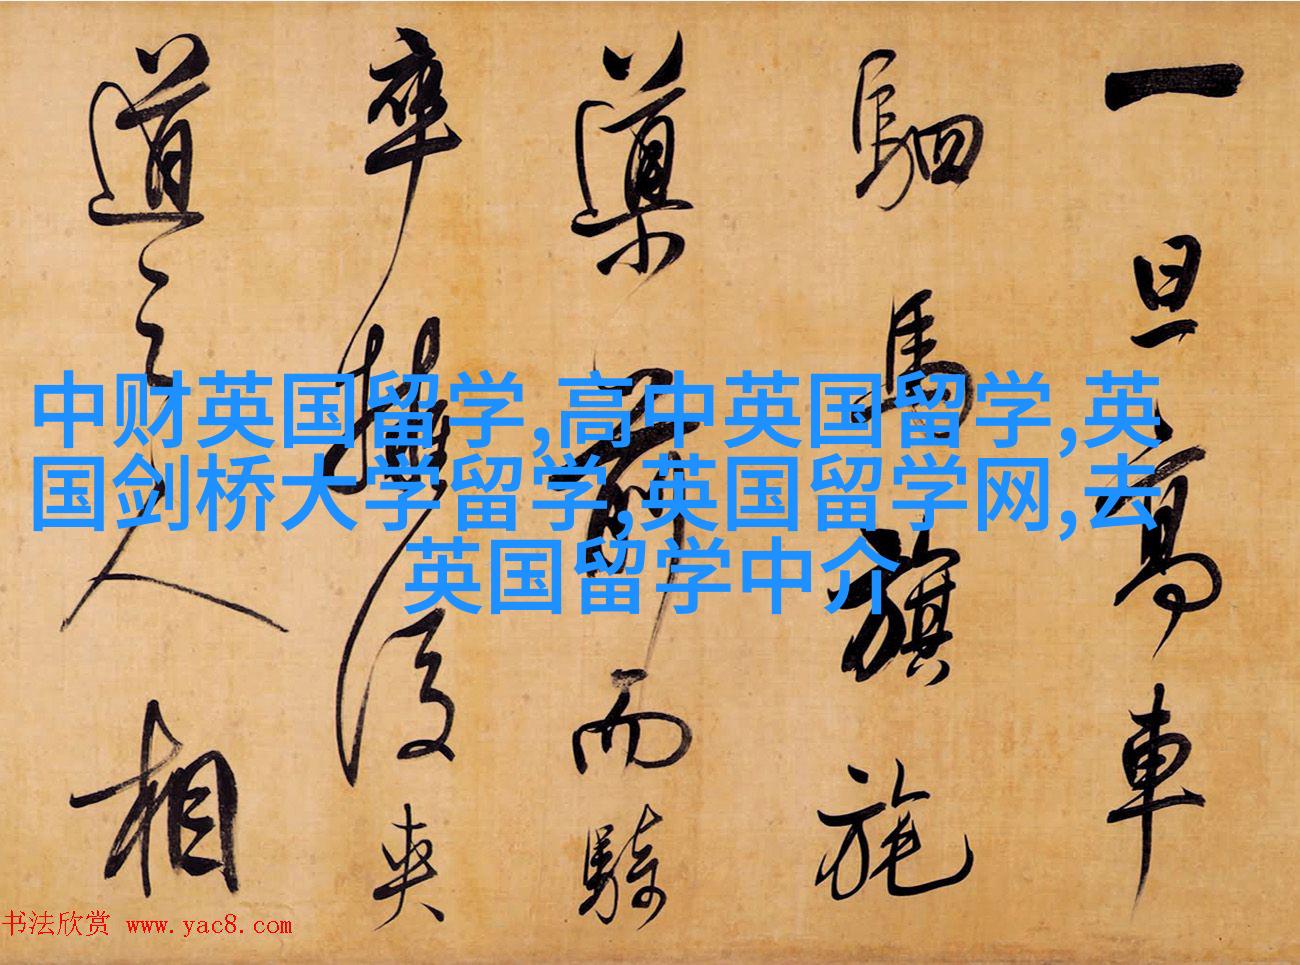 一旦高車
駟馬旗旄
導前而騎
卒擁後夾
道之人相
中财英国留学,高中英国留学,英
国剑桥大学留学,英国留学网,去
英国留学中介
书法欣赏 www.yac8.com